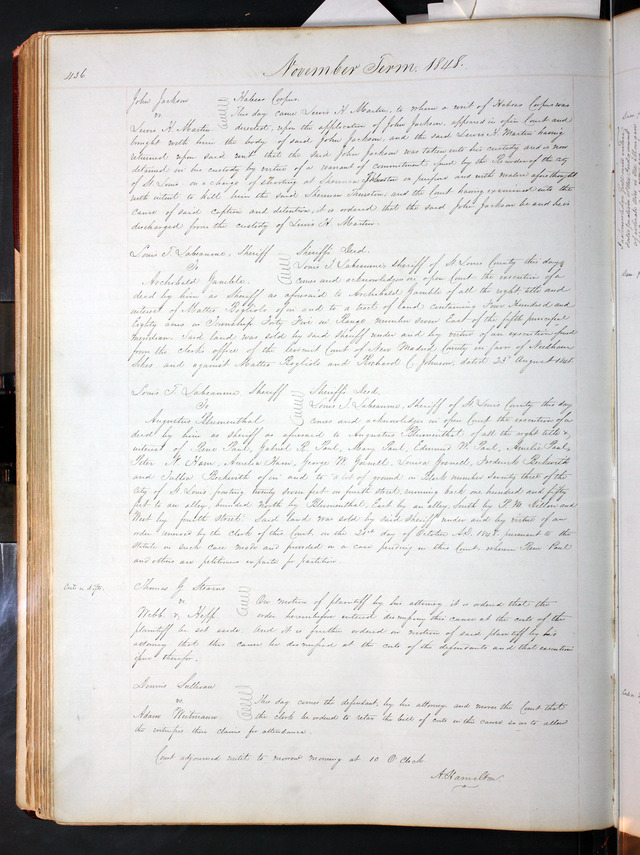 436
November Term. 1848.
John Jackson Habeas Corpus.
vs. This day came Lewis H. Martin, to whom a writ of Habeas Corpus was
Lewis H. Martin directed, upon the application of John Jackson, appeared in open Court and
brought with him the body of said John Jackson, and the said Lewis H. Martin having
returned upon said writ that the said John Jackson was taken into his custody and is now
detained in his custody by virtue of a warrant of commitment issued by the Recorder of the city
of St. Louis, on a charge of shooting at Sherman Thurston on purpose and with malice aforethought
with intent to kill him the said Sherman Thurston, and the Court having examined into the
cause of said caption and detention, it is ordered that the said John Jackson be and he is
discharged from the custody of Lewis H. Martin.
Louis T. Labeaume, Sheriff Sheriffs Deed.
To Louis T. Labeaume, Sheriff of St Louis County this day
Archibald Gamble. comes and acknowledges in open Court the execution of a
deed by him as Sheriff as aforesaid to Archibald Gamble of all the right title and
interest of Matteo of in and to a tract of land, containing Four Hundred and
Eighty acres in Township Forty Five in Range number seven East of the fifth principal
Meridian. Said land was sold by said Sheriff under and by virtue of an execution issued
from the clerks office of the Circuit Court of New Madrid County in favor of
and against Matteo and Richard C. Johnson, dated 23d August 1848.
Louis T. Labeaume Sheriff Sheriffs Deed.
To Louis T. Labeaume, Sheriff of St Louis County this day
Augustus Blumenthal comes and acknowledges in open Court the execution of a
deed by him as Sheriff as aforesaid to Augustus Blumenthal, of all the right title &
interest of Rene Paul, Gabriel R. Paul, Mary Paul, Edmund W. Paul, Amelie Paul,
Peter N. Ham, Amelia Ham, George W. Gosnell, Louisa Gosnell, Frederick Beckwith
and Beckwith of in and to a lot of ground in Block number seventy three of the
City of St Louis fronting twenty seven feet on fourth street, running back one hundred and fifty
feet to an alley, bounded North by Blumenthal, East by an alley South by P. M. Dillon and
West by fourth street. Said land was sold by said Sheriff under and by virtue of an
order issued by the Clerk of this Court on the 23rd day of October A.D. 1848, pursuant to the
Statute in such case made and provided in a case pending in this Court, wherein Rene Paul
and others are petitioners ex parte for partition.
Costs v. dfts. Thomas J. Stearns
vs. On motion of plaintiff by his attorney it is ordered that the
Webb & Hoff order heretofore entered dismissing this cause at the costs of the
plaintiff be set aside. And it is further ordered on motion of said plaintiff by his
attorney that this cause be dismissed at the costs of the defendants and that execution
issue therefor.
Dennis Sullivan
vs. This day comes the defendant, by his attorney and moves the Court that
Adam Weitmann. the clerk be ordered to retax the bill of costs in this cause so as to allow
the witnesses their claims for attendance.
Court adjourned until to morrow morning at 10 O'Clock.
A. Hamilton.